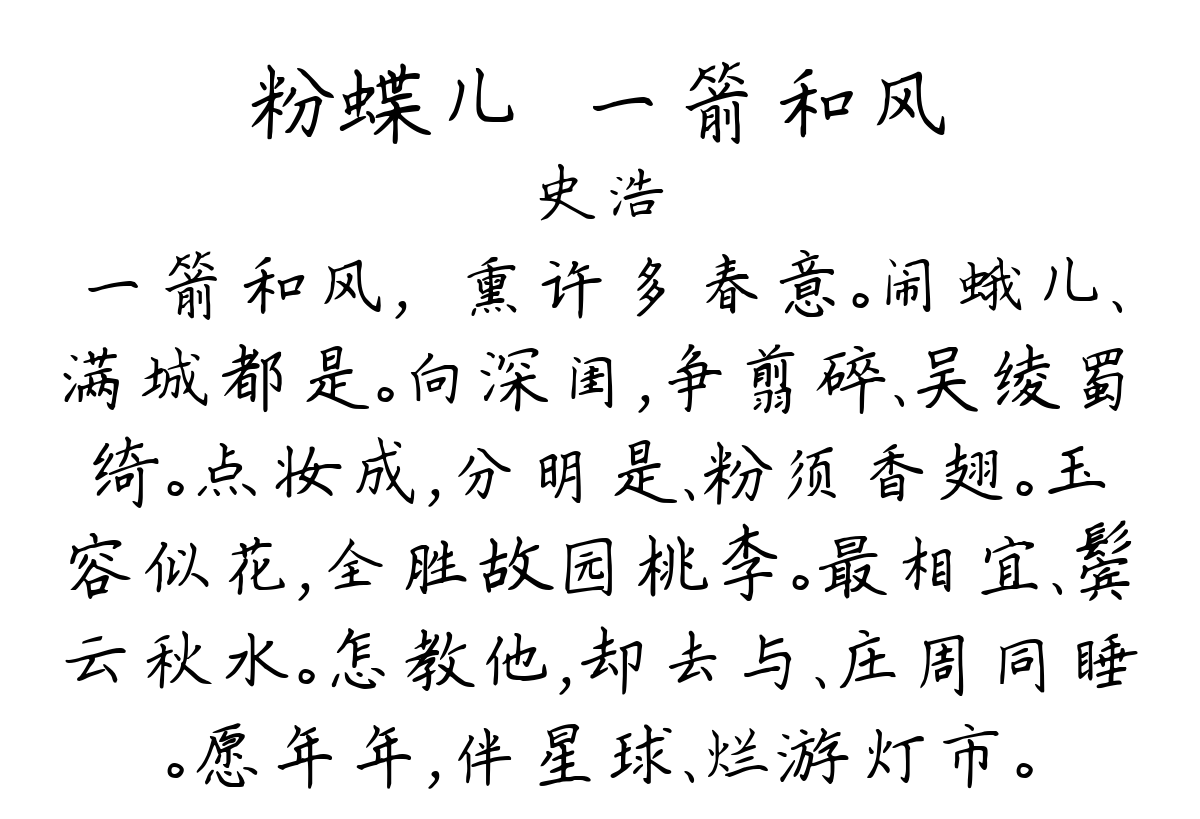 粉蝶儿 一箭和风
史浩
一箭和风，熏许多春意。闹蛾儿、
满城都是。向深闺，争剪碎、吴绫蜀
绮。点妆成，分明是、粉须香翅。玉
容似花，全胜故园桃李。最相宜、鬓
云秋水。怎教他，却去与、庄周同睡
。愿年年，伴星球、烂游灯市。